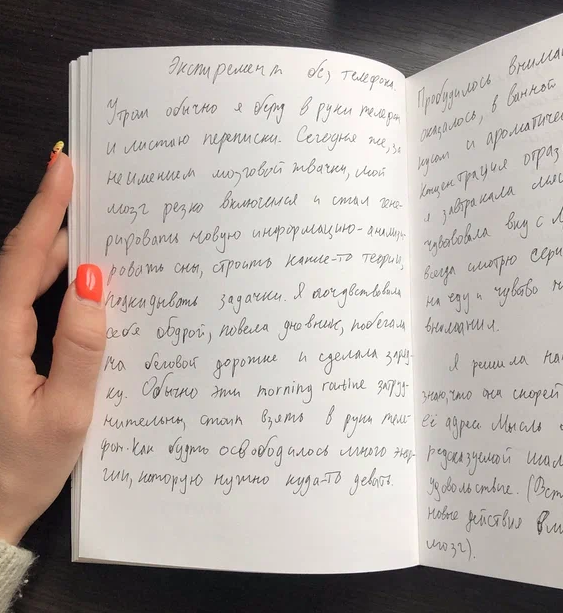 Эксперемент без телефона.
Утром обычно я беру в руки телефон
и листаю переписки. Сегодня же, за
неимением мозговой жвачки, мой
мозг резко включился и стал гене-
рировать новую информацию - анализи-
ровать сны, строить какие-то теории,
подкидывать задачки. Я почувствовала
себя бодрой, повела дневник, побегала
на беговой дорожке и сделала заряд-
ку. Обычно эти morning routine затруд-
нительны, стоит взять в руки теле-
фон. Как будто освободилось много энер-
гии, которую нужно куда-то девать.
Пробудилось внима
оказалось, в ванной
кусом и ароматиче
концентрация отраз
я завтракала
чувствовала вкус с
всегда смотрю сери
на еду и чувство
внимания.
Я решила на
знаю, что она скорей
её адреса Мысль
редсказуемой шал
удовольствие. (Вст
новые действия
мозг).